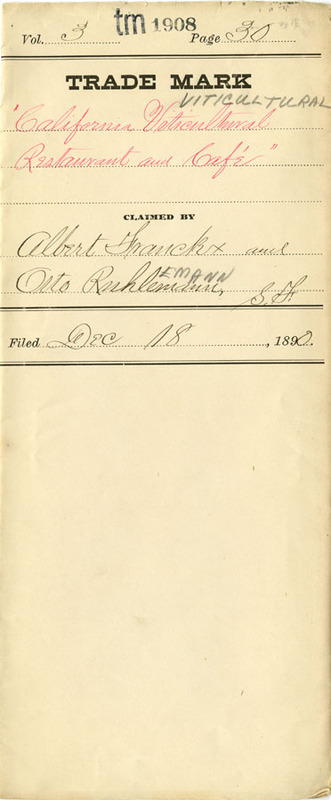 Vol. 3 tm 1908 Page 30
TRADE MARK
VITICULTURAL
"California Viticultural
Restaurant and Café"
CLAIMED BY
Albert Franckx and
Otto EMANN
S.F.
Filed Dec 18, 1890.